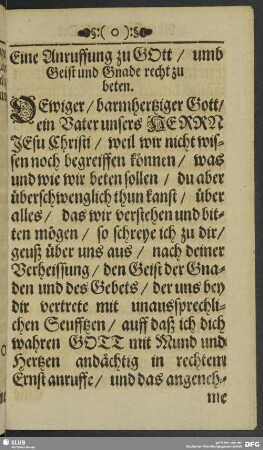 §:( o ):§
Eine Anruffung zu GOtt / umb
Geist und Gnade recht zu
beten.
O Ewiger / barmhertziger Gott/
ein Vater unsers HERRN
JEsu Christi / weil wir nicht wis-
sen noch begreiffen können / was
und wie wir beten sollen / du aber
überschwenglich thun kanst / über
alles / das wir verstehen und bit-
ten mögen / so schreye ich zu dir/
geuß über uns aus / nach deiner
Verheissung / den Geist der Gna-
den und des Gebets / der uns bey
dir vertrete mit unaussprechli-
chen Seufftzen / auff daß ich dich
wahren GOTT mit Mund und
Hertzen andächtig in rechtem
Ernst anruffe / und das angeneh-
me
SLUB